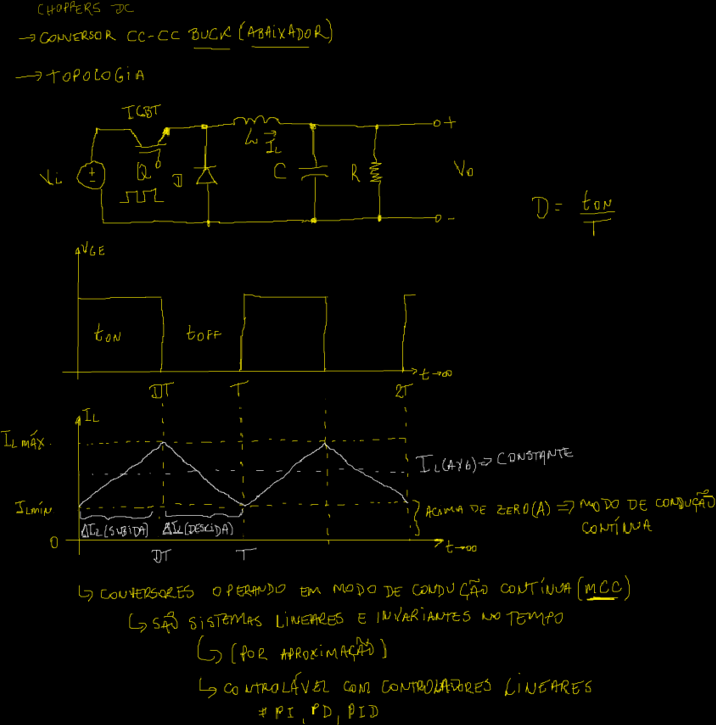 CHOPPERS DC
→ CONVERSOR CC-CC BUCK (ABAIXADOR)
→ TOPOLOGIA
IGBT
L
IL
Vi
Q
D
C
R
+
V0
-
D = tON / T
VGE
tON
tOFF
t→∞
DT
T
2T
IL
IL MÁX.
IL(AVG) ⇒ CONSTANTE
ILMÍN
ΔIL(SUBIDA)
ΔIL(DESCIDA)
ACIMA DE ZERO(A) ⇒ MODO DE CONDUÇÃO
CONTÍNUA
0
DT
T
t→∞
↳ CONVERSORES OPERANDO EM MODO DE CONDUÇÃO CONTÍNUA (MCC)
↳ SÃO SISTEMAS LINEARES E INVARIANTES NO TEMPO
↳ (POR APROXIMAÇÃO)
↳ CONTROLÁVEL COM CONTROLADORES LINEARES
# PI, PD, PID